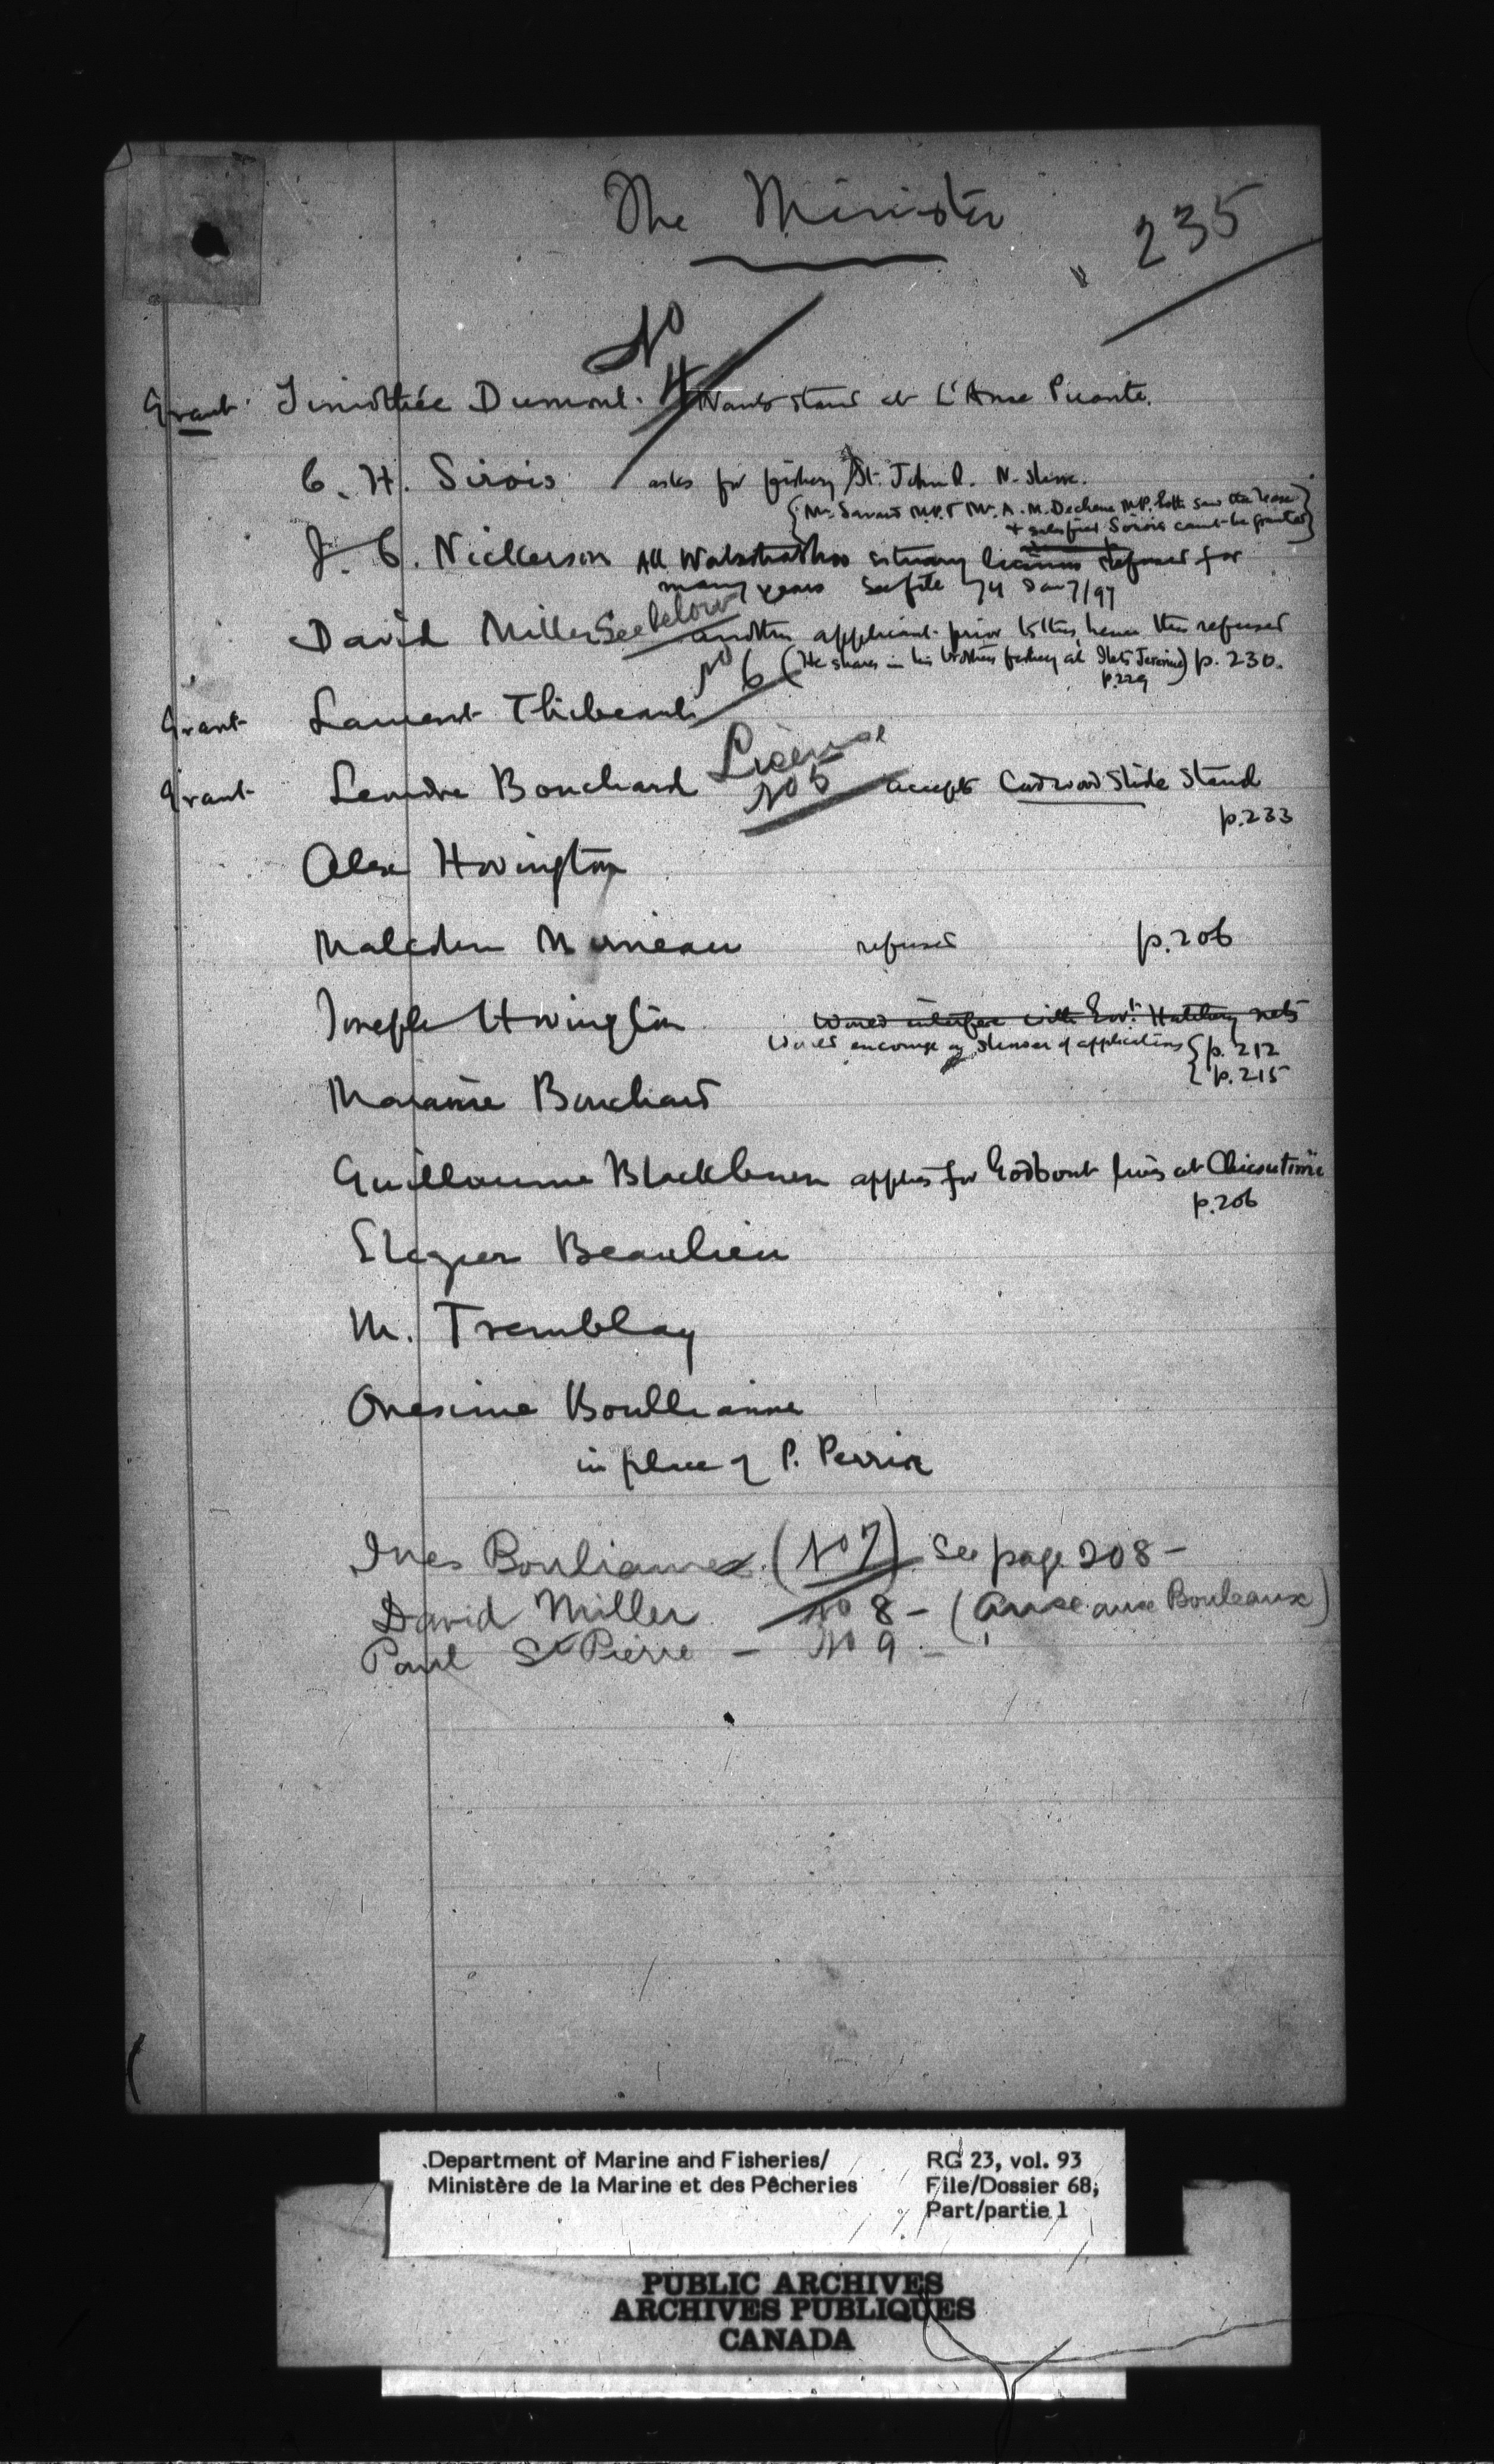 The Minister
235
No 4
Grant Timothée Dumont. Wants stand at L'Anse Picante.
C. H. Sirois asks for fishery St. John R. N. Shore.
{Mr. Savard M.P. & Mr. A. M. Dechene M.P. both saw the lease}
+ satisfied Sirois cannot be granted}
J. C. Nickerson All estuary licenses refused for
many years See file 74 Jan 7/97
David Miller See below another applicant prior to this, hence this refused
(He shares in his brothers fishery at Ilets Jeremie) p. 230.
p. 229
Grant Laurent Thibeault No 6
Grant Leandre Bouchard License No 5 accepts Cudwood Slide Stand
p. 233
Alex Hovington
Malcolm Morneau refused p. 206
Joseph Hovington Would interfere with Govt. Hatchery nets
Would encourage of applications {p. 212
{p. 215
Bouchard
Guillaume Blackburn applies for Godbout lives at Chicoutimi
p. 206
Elzear Beaulieu
M. Tremblay
Onesime Boullianne
in place of P. Perrin
Ines Boulianne (No 7) See page 208 -
David Miller No 8 - (Anse aux Bouleaux)
Paul St Pierre - No 9 -
Department of Marine and Fisheries/
Ministère de la Marine et des Pêcheries
RG 23, vol. 93
File/Dossier 68,
Part/partie 1
PUBLIC ARCHIVES
ARCHIVES PUBLIQUES
CANADA